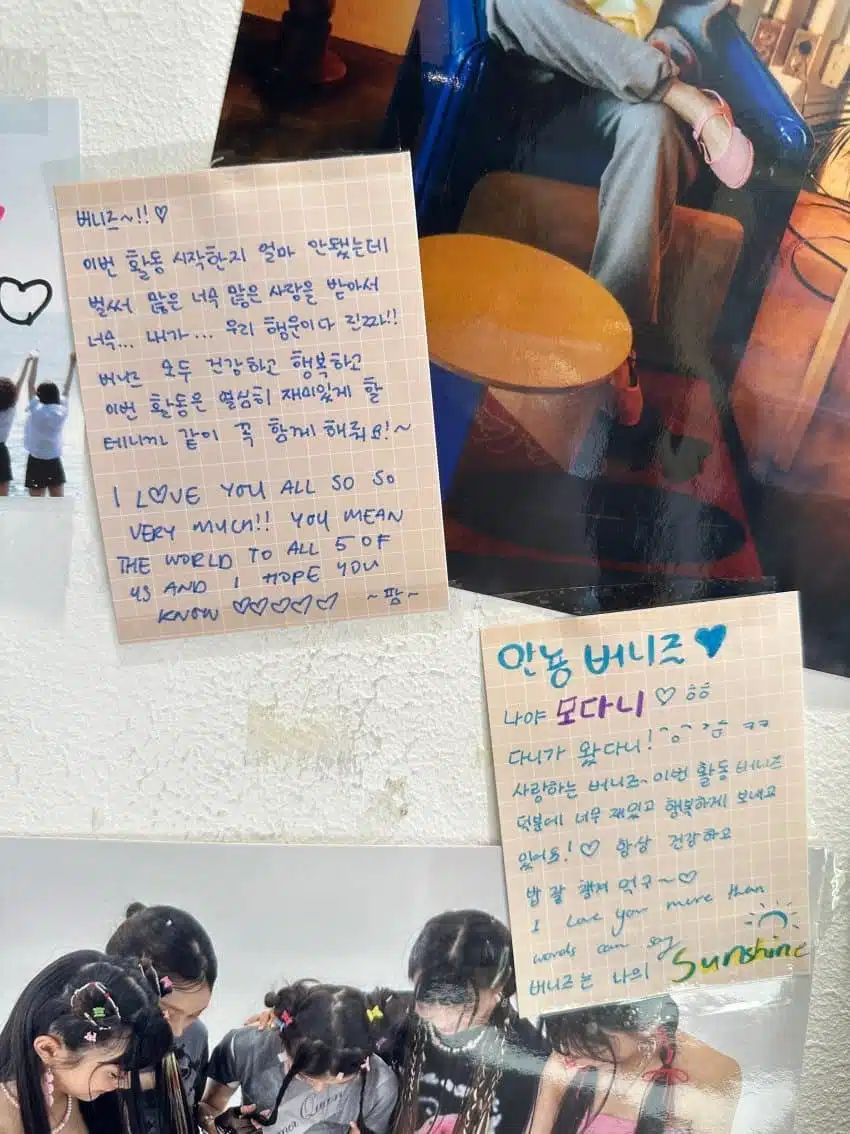 버니즈~!!♡
이번 활동 시작한지 얼마 안됐는데
벌써 많은 너무 많은 사랑을 받아서
너무... 내가... 우리 행운이다 진짜!!
버니즈 모두 건강하고 행복하고
이번 활동은 열심히 재미있게 할
테니까 같이 꼭 함께 해줘요!~
I L♡VE YOU ALL SO SO
VERY MUCH!! YOU MEAN
THE WORLD TO ALL 5 OF
US AND I HOPE YOU
KNOW ♡♡♡♡♡ ~팜~
안뇽 버니즈♥
나야 모다니♡ ㅎㅎ
다니가 왔다니! ㅋㅋ
사랑하는 버니즈~ 이번 활동 버니즈
덕분에 너무 재밌고 행복하게 보내고
있어요!♡ 항상 건강하고
밥 잘 챙겨 먹구~♡
I love you more than
words can say
버니즈는 나의 Sunshine